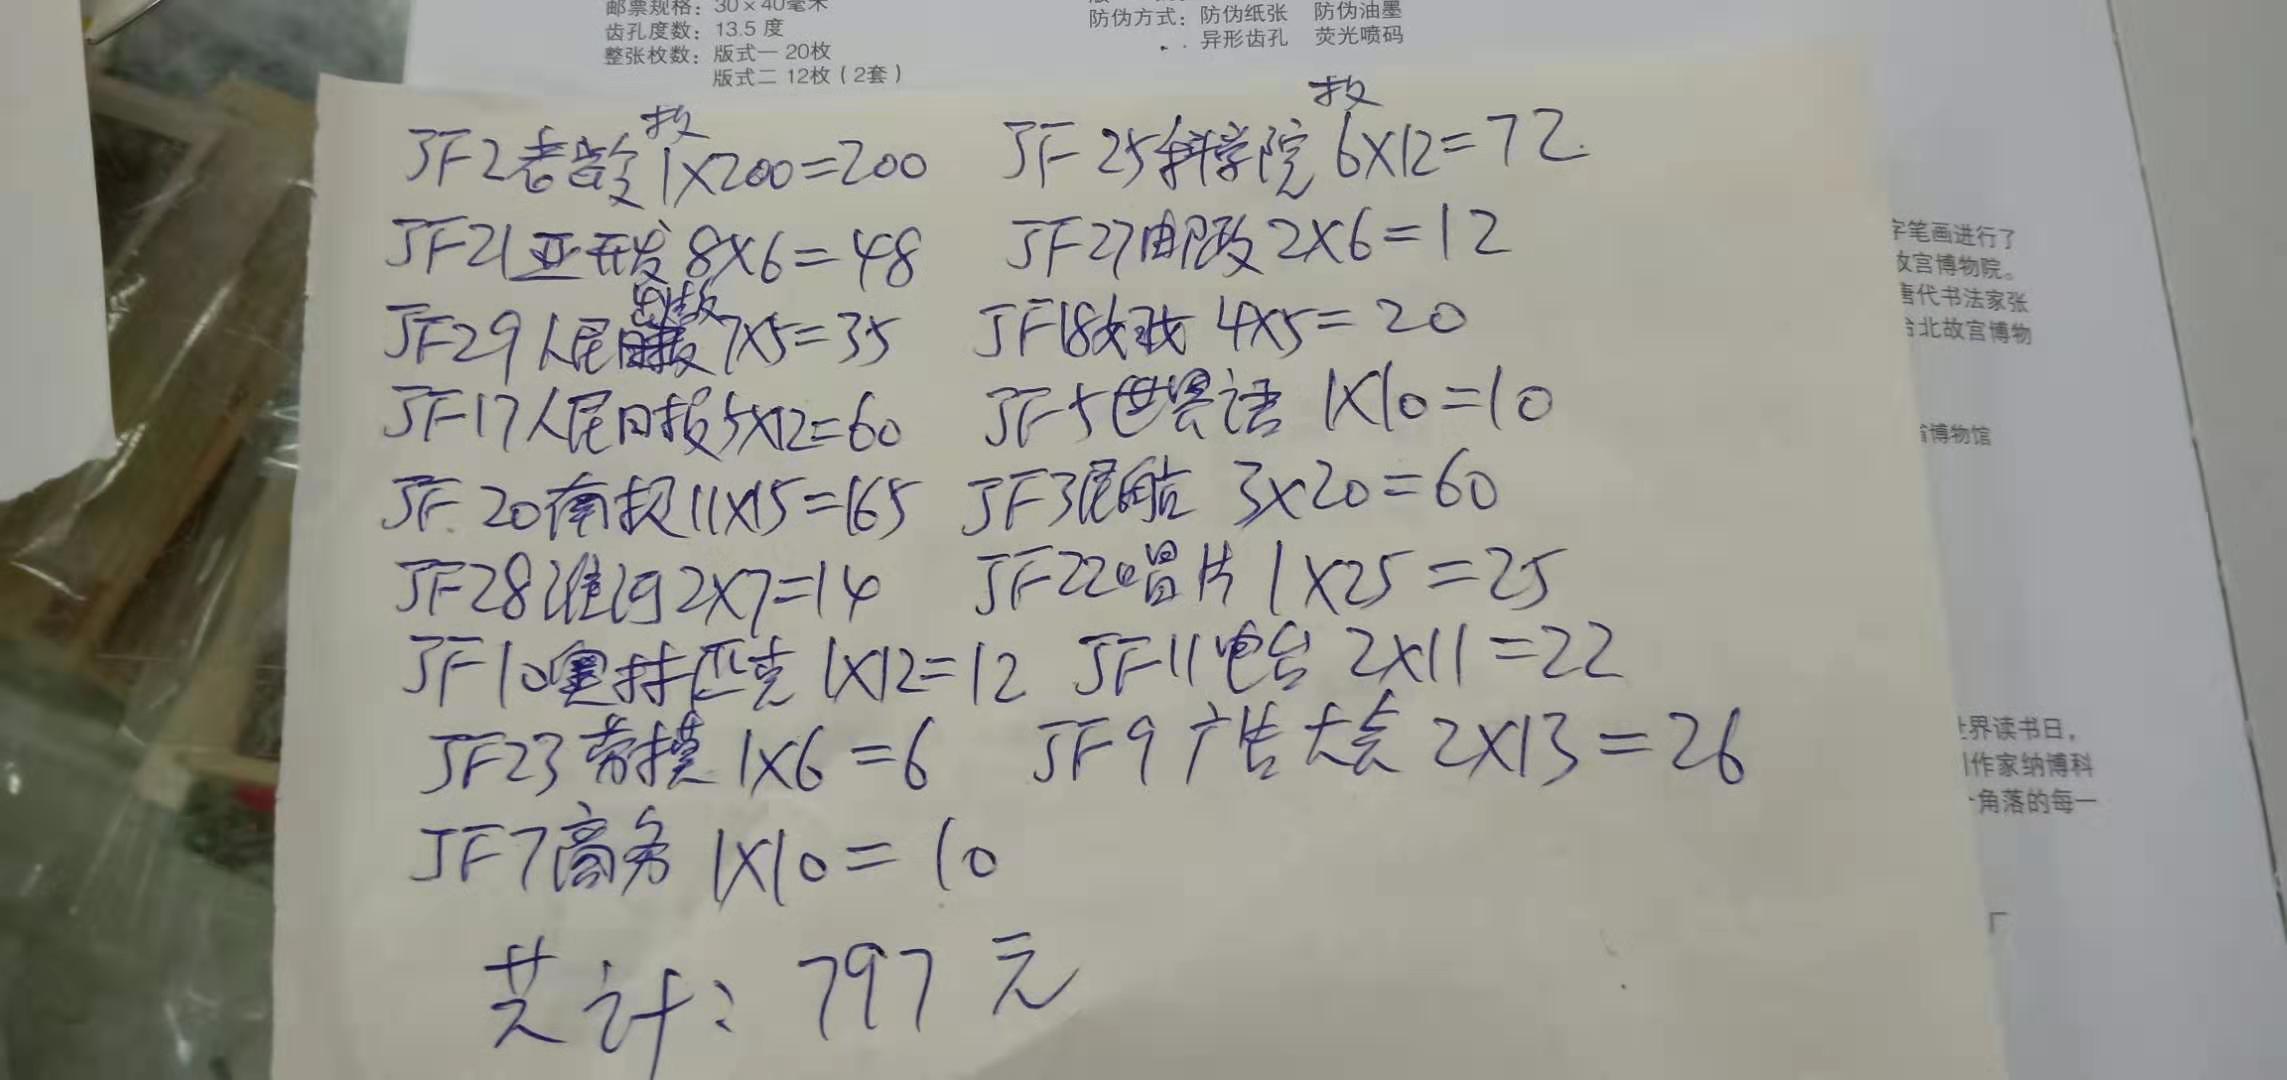 邮票规格：30×40毫米
齿孔度数：13.5 度
整张枚数：版式一 20枚
版式二 12枚（2套）
防伪方式：防伪纸张 防伪油墨
异形齿孔 荧光喷码
枚
JF2老龄 1X200=200
JF21亚开发 8X6=48
JF29人民 7X5=35
JF17人民日报5X12=60
JF20南极11X15=165
JF28淮河2X7=14
JF10塞林匹克 1X12=12
JF23劳模 1X6=6
JF7商务 1X10=10
共计：797元
枚
JF25科学院 6X12=72
JF27邮政 2X6=12
JF18 4X5=20
JF5世界语 1X10=10
JF3 3X20=60
JF22唱片 1X25=25
JF11电台 2X11=22
JF9广告大会 2X13=26
字笔画进行了
故宫博物院。
唐代书法家张
台北故宫博物
省博物馆
世界读书日，
作家纳博科
角落的每一
厂